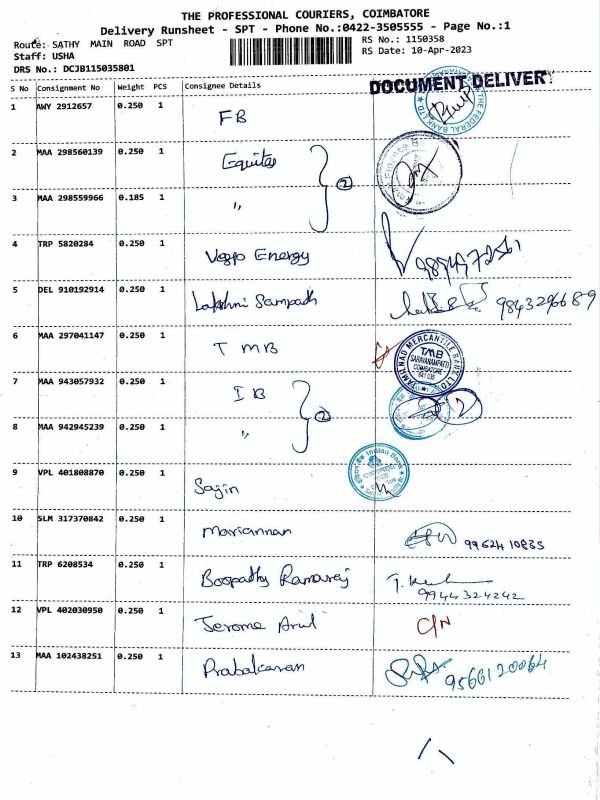 THE PROFESSIONAL COURIERS, COIMBATORE
Delivery Runsheet - SPT - Phone No.:0422-3505555 - Page No.:1
Route: SATHY MAIN ROAD SPT
RS No.: 1150358
Staff: USHA
RS Date: 10-Apr-2023
DRS No.: DCJB115035801
S No Consignment No Weight PCS Consignee Details
DOCUMENT DELIVERY
1 AWY 2912657 0.250 1 FB
THE FEDERAL BANK LTD
2 MAA 298560139 0.250 1 Equitas
3 MAA 298559966 0.185 1 "
2
4 TRP 5820284 0.250 1 Energy
5 DEL 910192914 0.250 1 Lakshmi Sampath 9843296689
6 MAA 297041147 0.250 1 TMB
TAMILNAD MERCANTILE BANK LTD
TMB
SARAVANAMPATTI
COIMBATORE
641 035
7 MAA 943057932 0.250 1 IB
8 MAA 942945239 0.250 1 "
2
2
9 VPL 401808870 0.250 1 Sajin
Indian Bank
10 SLM 317370842 0.250 1 Mariannan 9962410835
11 TRP 6208534 0.250 1 Boopathy Ramaraj
9944324242
12 VPL 402030950 0.250 1 Jerome Arul C/N
13 MAA 102438251 0.250 1 Prabakaran 9566120064